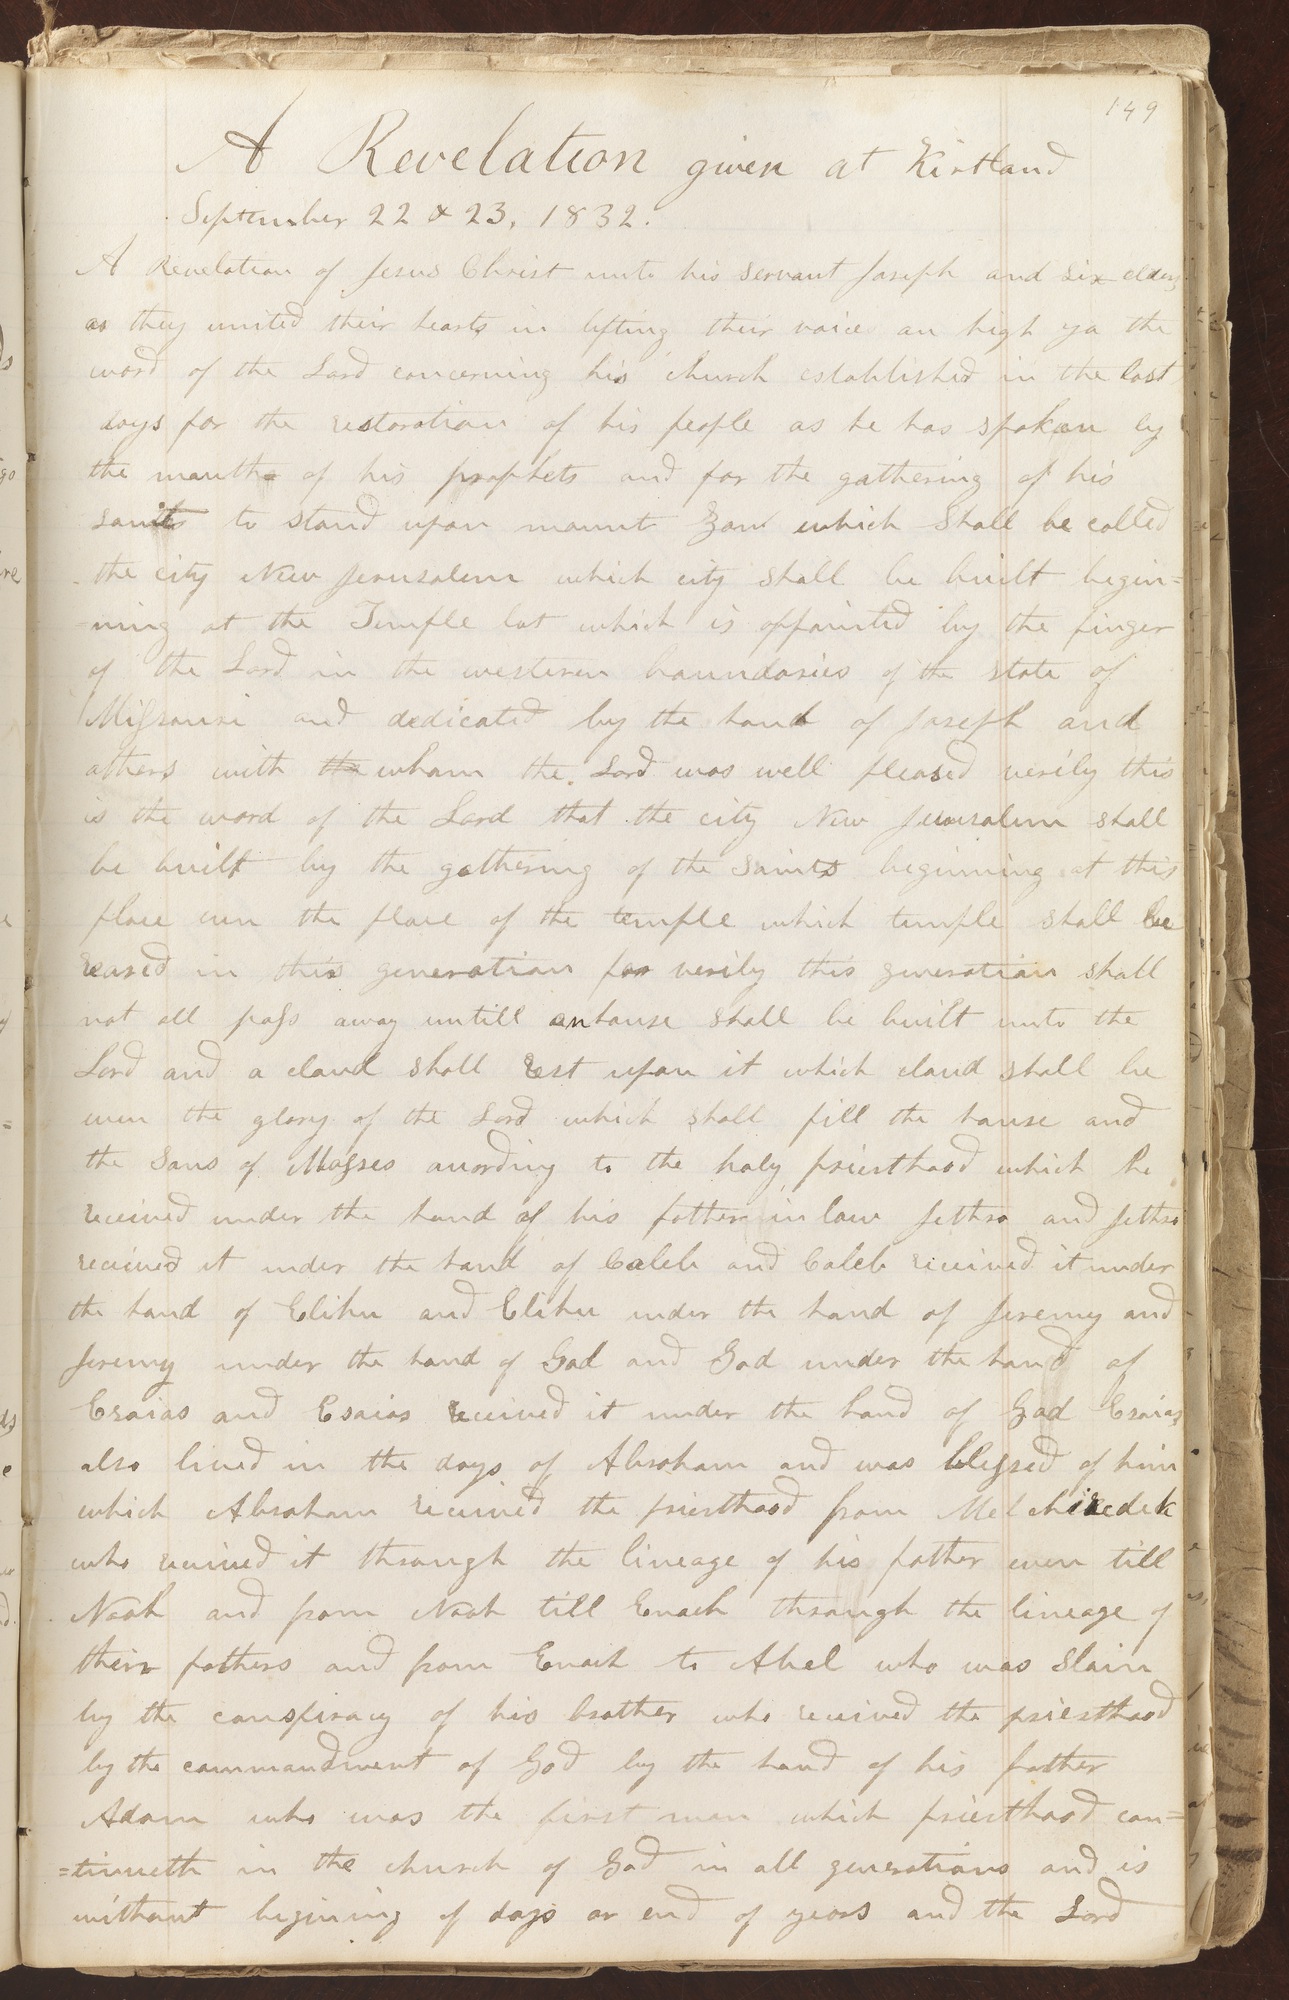 149
A Revelation given at Kirtland
September 22 & 23, 1832.
A Revelation of Jesus Christ unto his servant Joseph and six elders
as they united their hearts in lifting their voices on high ya the
word of the Lord concerning his church established in the last
days for the restoration of his people as he has spoken by
the mouth of his prophets and for the gathering of his
saints to stand upon mount Zion which Shall be called
the city New Jerusalem which city shall be built begin=
=ning at the Temple lot which is appointed by the finger
of the Lord in the western boundaries of the state of
Missouri and dedicated by the hand of Joseph and
others with the whom the Lord was well pleased verily this
is the word of the Lord that the city New Jerusalem shall
be built by the gathering of the Saints beginning at this
place even the place of the temple which temple shall be
reared in this generation for verily this generation shall
not all pass away untill an house shall be built unto the
Lord and a cloud shall rest upon it which cloud shall be
even the glory of the Lord which shall fill the house and
the Sons of Mosses acording to the holy priesthood which he
received under the hand of his father in law Jethro and Jethro
received it under the hand of Caleb and Caleb received it under
the hand of Elihu and Elihu under the hand of Jeremy and
Jeremy under the hand of Gad and Gad under the hand of
Esaias and Esaias received it under the hand of God Esaias
also lived in the days of Abraham and was blessed of him
which Abraham received the priesthood from Melchizedek
who received it through the lineage of his father even till
Noah and from Noah till Enoch through the lineage of
their fathers and from Enoch to Abel who was slain
by the conspiracy of his brother who received the priesthood
by the commandment of God by the hand of his father
Adam who was the first man which priesthood con=
=tinueth in the church of God in all generations and is
without begining of days or end of years and the Lord